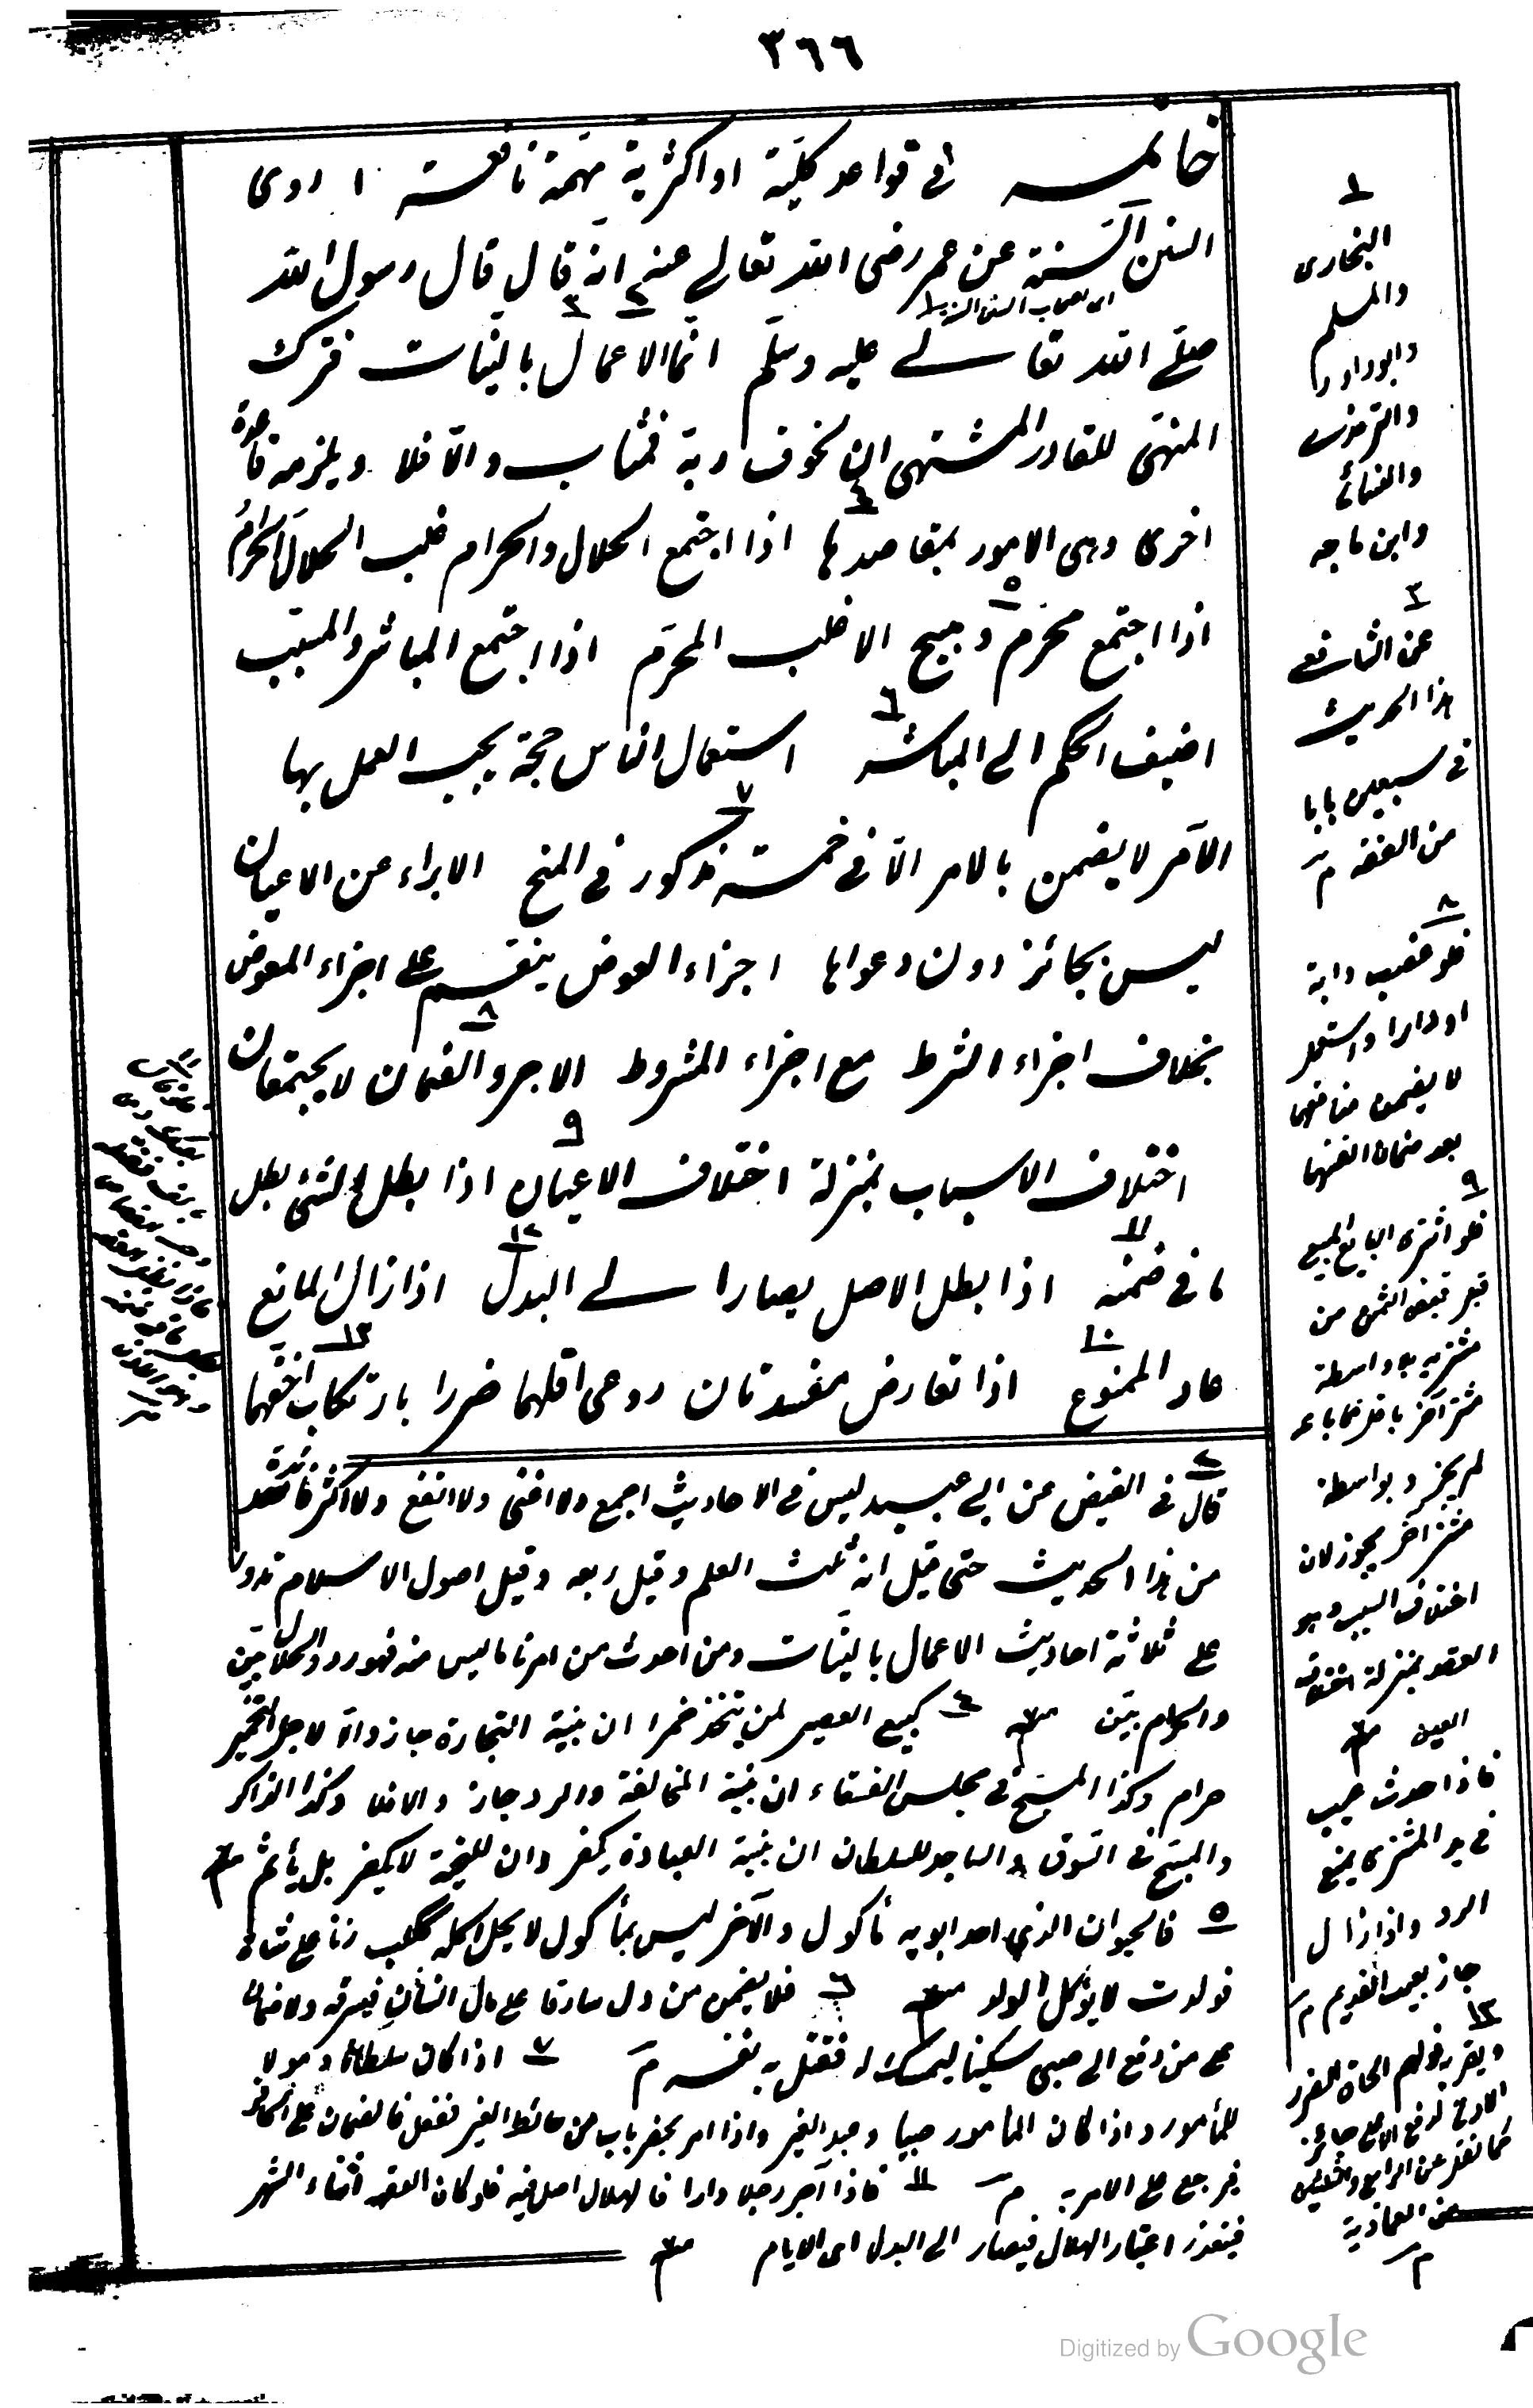 ٣٦٦
خاتمه في قواعد كليّة او اكثرية مهمّة نافعة ١ روى
السنن الستة عن عمر رضى الله تعالى عنه انه قال قال رسول الله
اى اصحاب السنن
صلّى الله تعالى عليه وسلّم انّما الاعمال بالنّيات فترك
المنهىّ للقادر المشتهى ان لخوف ربه فمثاب والّا فلا ويلزمه قاعدة
اخرى وهى الامور بمقاصدها اذا اجتمع الحلال والحرام غلب الحلالَ الحرامُ
اذا اجتمع محرّم ومبيح الا غلب المحرّم اذا اجتمع المباشر والمسبّب
اضيف الحكم الى المباشر استعمال الناس حجّة يجب العمل بها
الآمر لا يضمن بالامر الّا في خمسة مذكور في المنح الابراء عن الاعيان
ليس بجائز دون دعواها اجزاء العوض ينقسم على اجزاء المعوض
بخلاف اجزاء الشرط مع اجزاء المشروط الاجر والضمان لا يجتمعان
اختلاف الاسباب بمنزلة اختلاف الاعيان اذا بطل الشئ بطل
ما في ضمنه اذا بطل الاصل يصار الى البدل اذا زال المانع
عاد الممنوع اذا تعارض مفسدتان روعى اقلهما ضررا بارتكاب اخفّهما
٢
قال في الفيض عن ابى عبيد ليس في الاحاديث اجمع ولا اغنى ولا انفع ولا اكثر فائدة
من هذا الحديث حتى قيل انه ثلث العلم وقيل ربعه وقيل اصول الاسلام تدور
على ثلاثة احاديث الاعمال بالنّيات ومن احدث من امرنا ما ليس منه فهو ردّ والحلال بيّن
والحرام بيّن منه ٤ كبيع العصير لمن يتخذ خمرا ان بنية التجارة جاز والّا لاجل التخمير
حرام وكذا المسبّح في مجلس الفسقاء ان بنية المخالفة والرد جاز والا فلا وكذا الذاكر
والمسبّح في السّوق والساجد للسلطان ان بنية العبادة يكفر وان للتحية لا يكفر بل يأثم منه
٥ فالحيوان الذي احد ابويه مأكول والآخر ليس بمأكول لا يحل اكله ككلب نزا على شاة
فولدت لا يؤكل الولد منه ٦ فلا يضمن من دل سارقا على مال انسان فيسرقه ولا ضمان
على من دفع الى صبى سكينا ليمسك له فقتل به نفسه م ٧ اذا كان سلطانا و مولا
للمأمور واذا كان المأمور صبيا وعبد الغير واذا امر بحفر باب من حائط الغير ففعل فالضمان على الحافر
فيرجع على الامر به م ١١ فاذا آجر رجل دارا فالهلال اصل فيه فلو كان العقد اثناء الشهر
فيتعذر اعتبار الهلال فيصار الى البدل اى الايام منه
١
البخارى
والمسلم
وابو داود
والترمذى
والنسائى
وابن ماجه
٣
عن الشافعى
هذا الحديث
في سبعين بابا
من الفقه م
٨
فلو غصب دابة
او دارا واستعمل
لا يضمن منافعهما
بعد ضمان انفسهما
٩
فلو اشترى البايع المبيع
قبل قبض الثمن من
مشتريه بلا واسطة
مشتر آخر باقل مما باعه
لم يجز وبواسطة
مشتر آخر يجوز لان
اختلاف السبب وهو
العقد بمنزلة اختلاف
العين منه
فاذا حدث عيب
في يد المشترى يمنع
الرد واذا زال
جاز بعيب القديم م
١٣
كما نقل عن
م
Digitized by Google